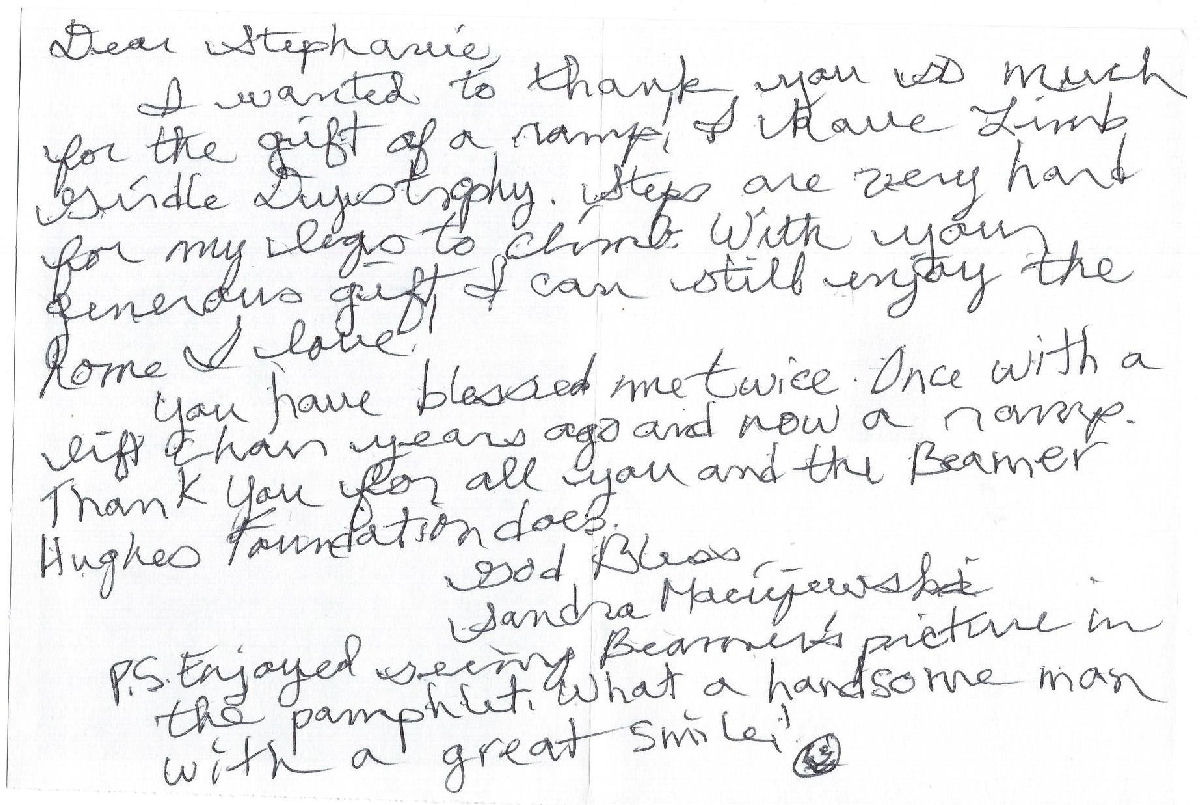 Dear Stephanie,
I wanted to thank you so much
for the gift of a ramp! I have Limb
Girdle Dystrophy. Steps are very hard
for my legs to climb. With your
generous gift, I can still enjoy the
home I love!
You have blessed me twice. Once with a
lift chair years ago and now a ramp.
Thank You for all you and the Beamer
Hughes Foundation does.
God Bless,
Sandra Maciejewski
P.S. Enjoyed seeing Beamer's picture in
the pamphlet. What a handsome man
with a great smile!